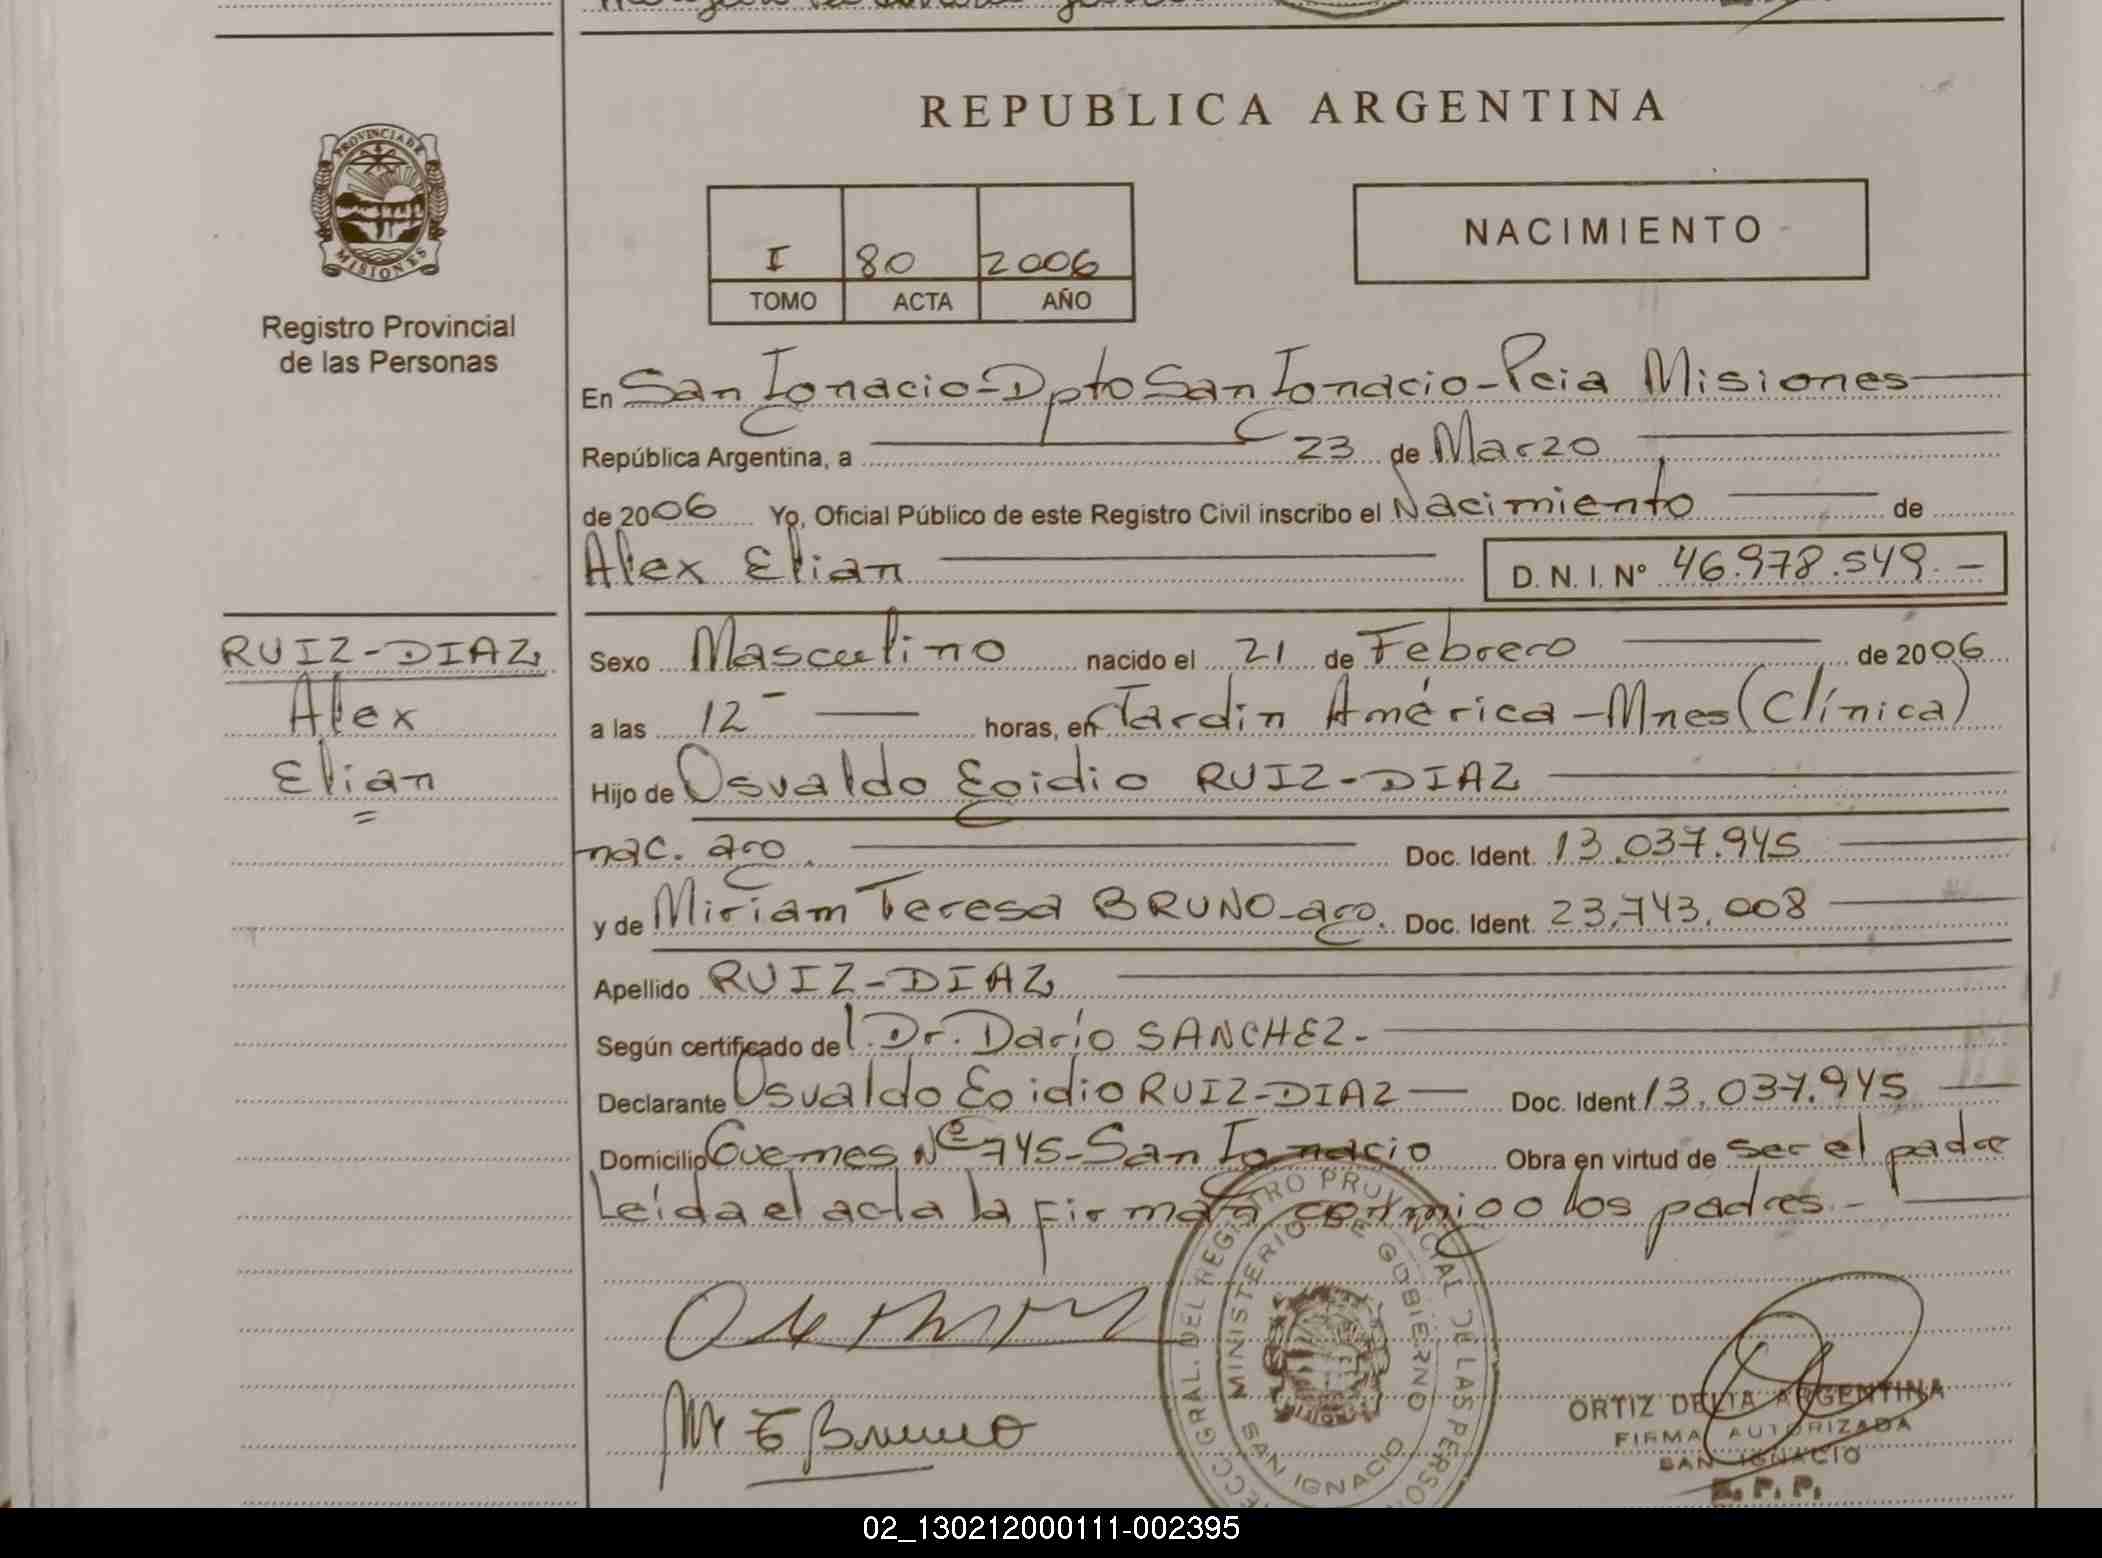 REPUBLICA ARGENTINA
PROVINCIA DE
MISIONES
Registro Provincial
de las Personas
I 80 2006
TOMO ACTA AÑO
NACIMIENTO
En San Ignacio - Dpto San Ignacio - Pcia Misiones
República Argentina, a 23 de Marzo
de 2006 Yo, Oficial Público de este Registro Civil inscribo el Nacimiento de
Alex Elian D. N. I. Nº 46.978.549.-
RUIZ-DIAZ
Alex
Elian
Sexo Masculino nacido el 21 de Febrero de 2006
a las 12- horas, en Jardin América - Mnes (Clínica)
Hijo de Osvaldo Egidio RUIZ-DIAZ
nac. arg. Doc. Ident. 13.037.945
y de Miriam Teresa BRUNO - arg. Doc. Ident. 23.743.008
Apellido RUIZ-DIAZ
Según certificado del Dr. Darío SANCHEZ-
Declarante Osvaldo Egidio RUIZ-DIAZ Doc. Ident. 13.037.945
Domicilio Guemes Nº 745 - San Ignacio Obra en virtud de ser el padre
Leída el acta la firman conmigo los padres.-
M T Bruno
MINISTERIO DE GOBIERNO
SAN IGNACIO
ORTIZ DELIA ARGENTINA
FIRMA AUTORIZADA
SAN IGNACIO
R. P. P.
02_130212000111-002395